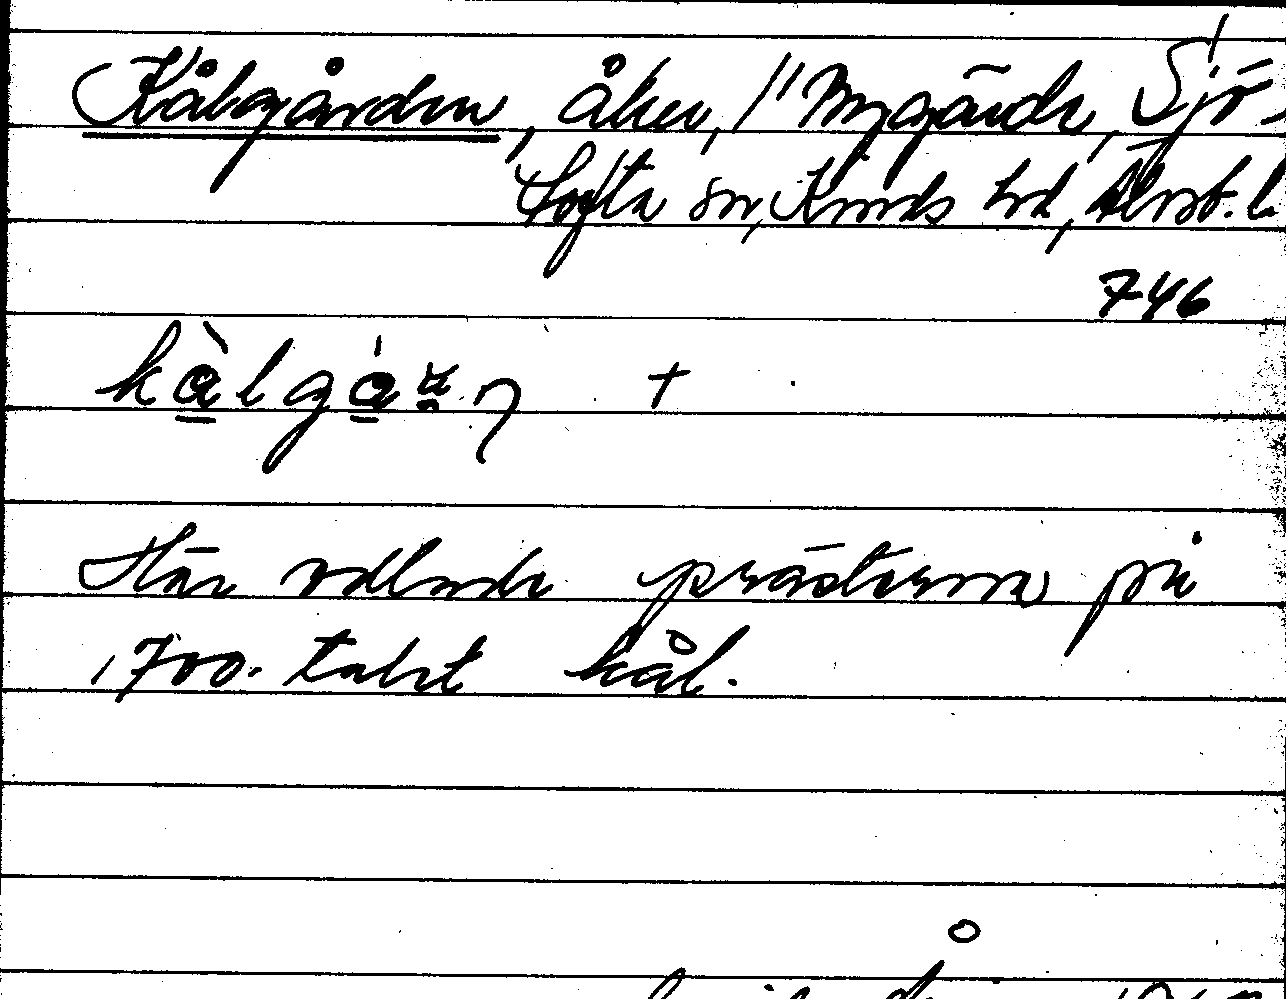 Kålgården, åker, Nygärde, Sjö-
tofta sn, Kinds hd, Älvsb. l.
746
kålgån +
Här odlade prästerna på
1700-talet kål.